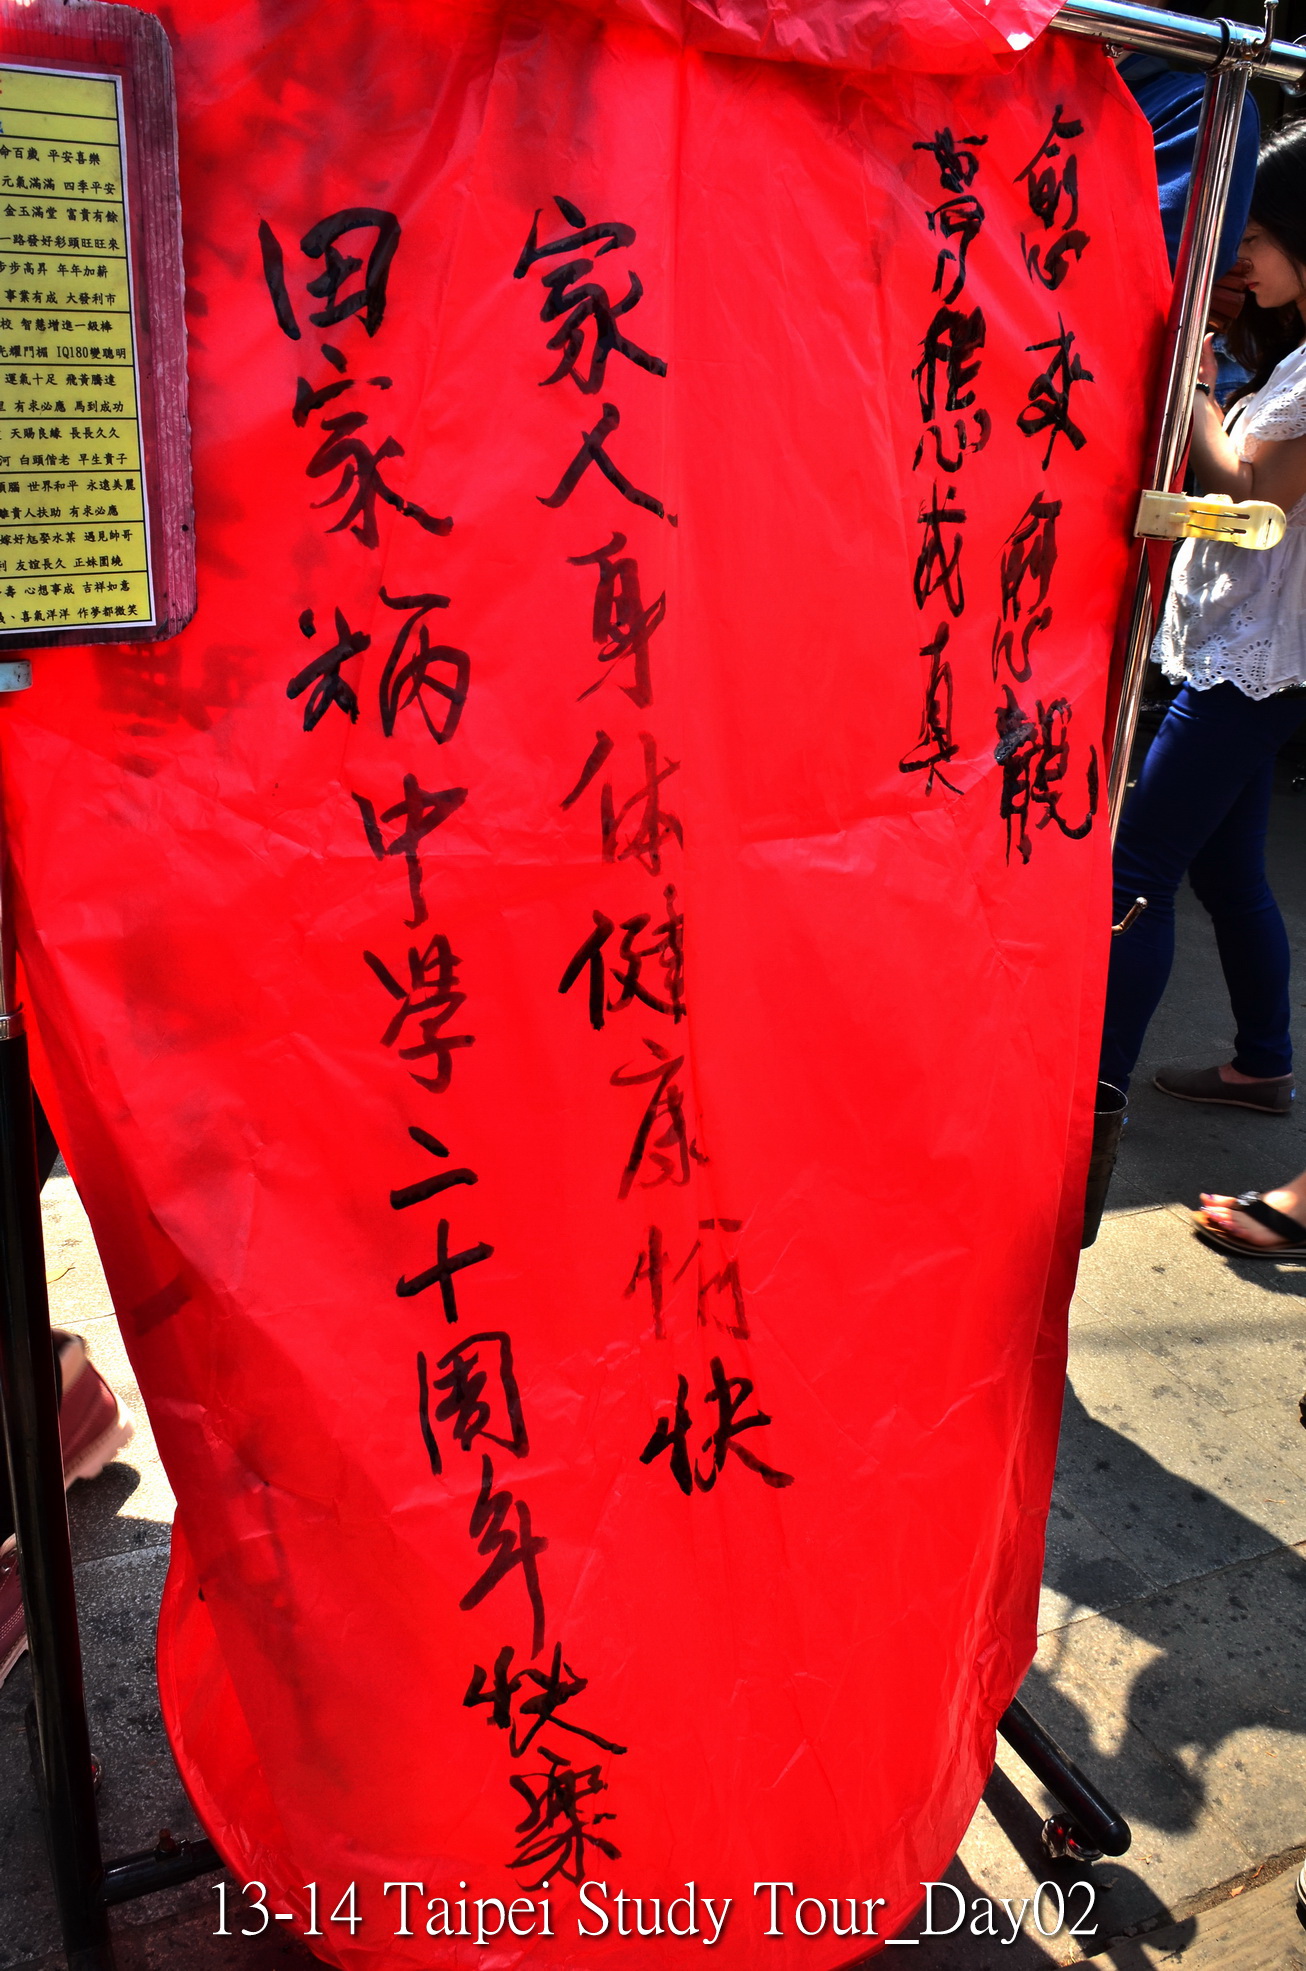 愈來愈靚
夢想成真
家人身体健康愉快
田家炳中學二十周年快樂
命百歲 平安喜樂
元氣滿滿 四季平安
金玉滿堂 富貴有餘
一路發好彩頭旺旺來
步步高昇 年年加薪
事業有成 大發利市
校 智慧增進一級棒
光耀門楣 IQ180變聰明
運氣十足 飛黃騰達
有求必應 馬到成功
天賜良緣 長長久久
河 白頭偕老 早生貴子
頭腦 世界和平 永遠美麗
離貴人扶助 有求必應
嫁好尪娶水某 遇見帥哥
利 友誼長久 正妹圍繞
壽 心想事成 吉祥如意
、喜氣洋洋 作夢都微笑
13-14 Taipei Study Tour_Day02